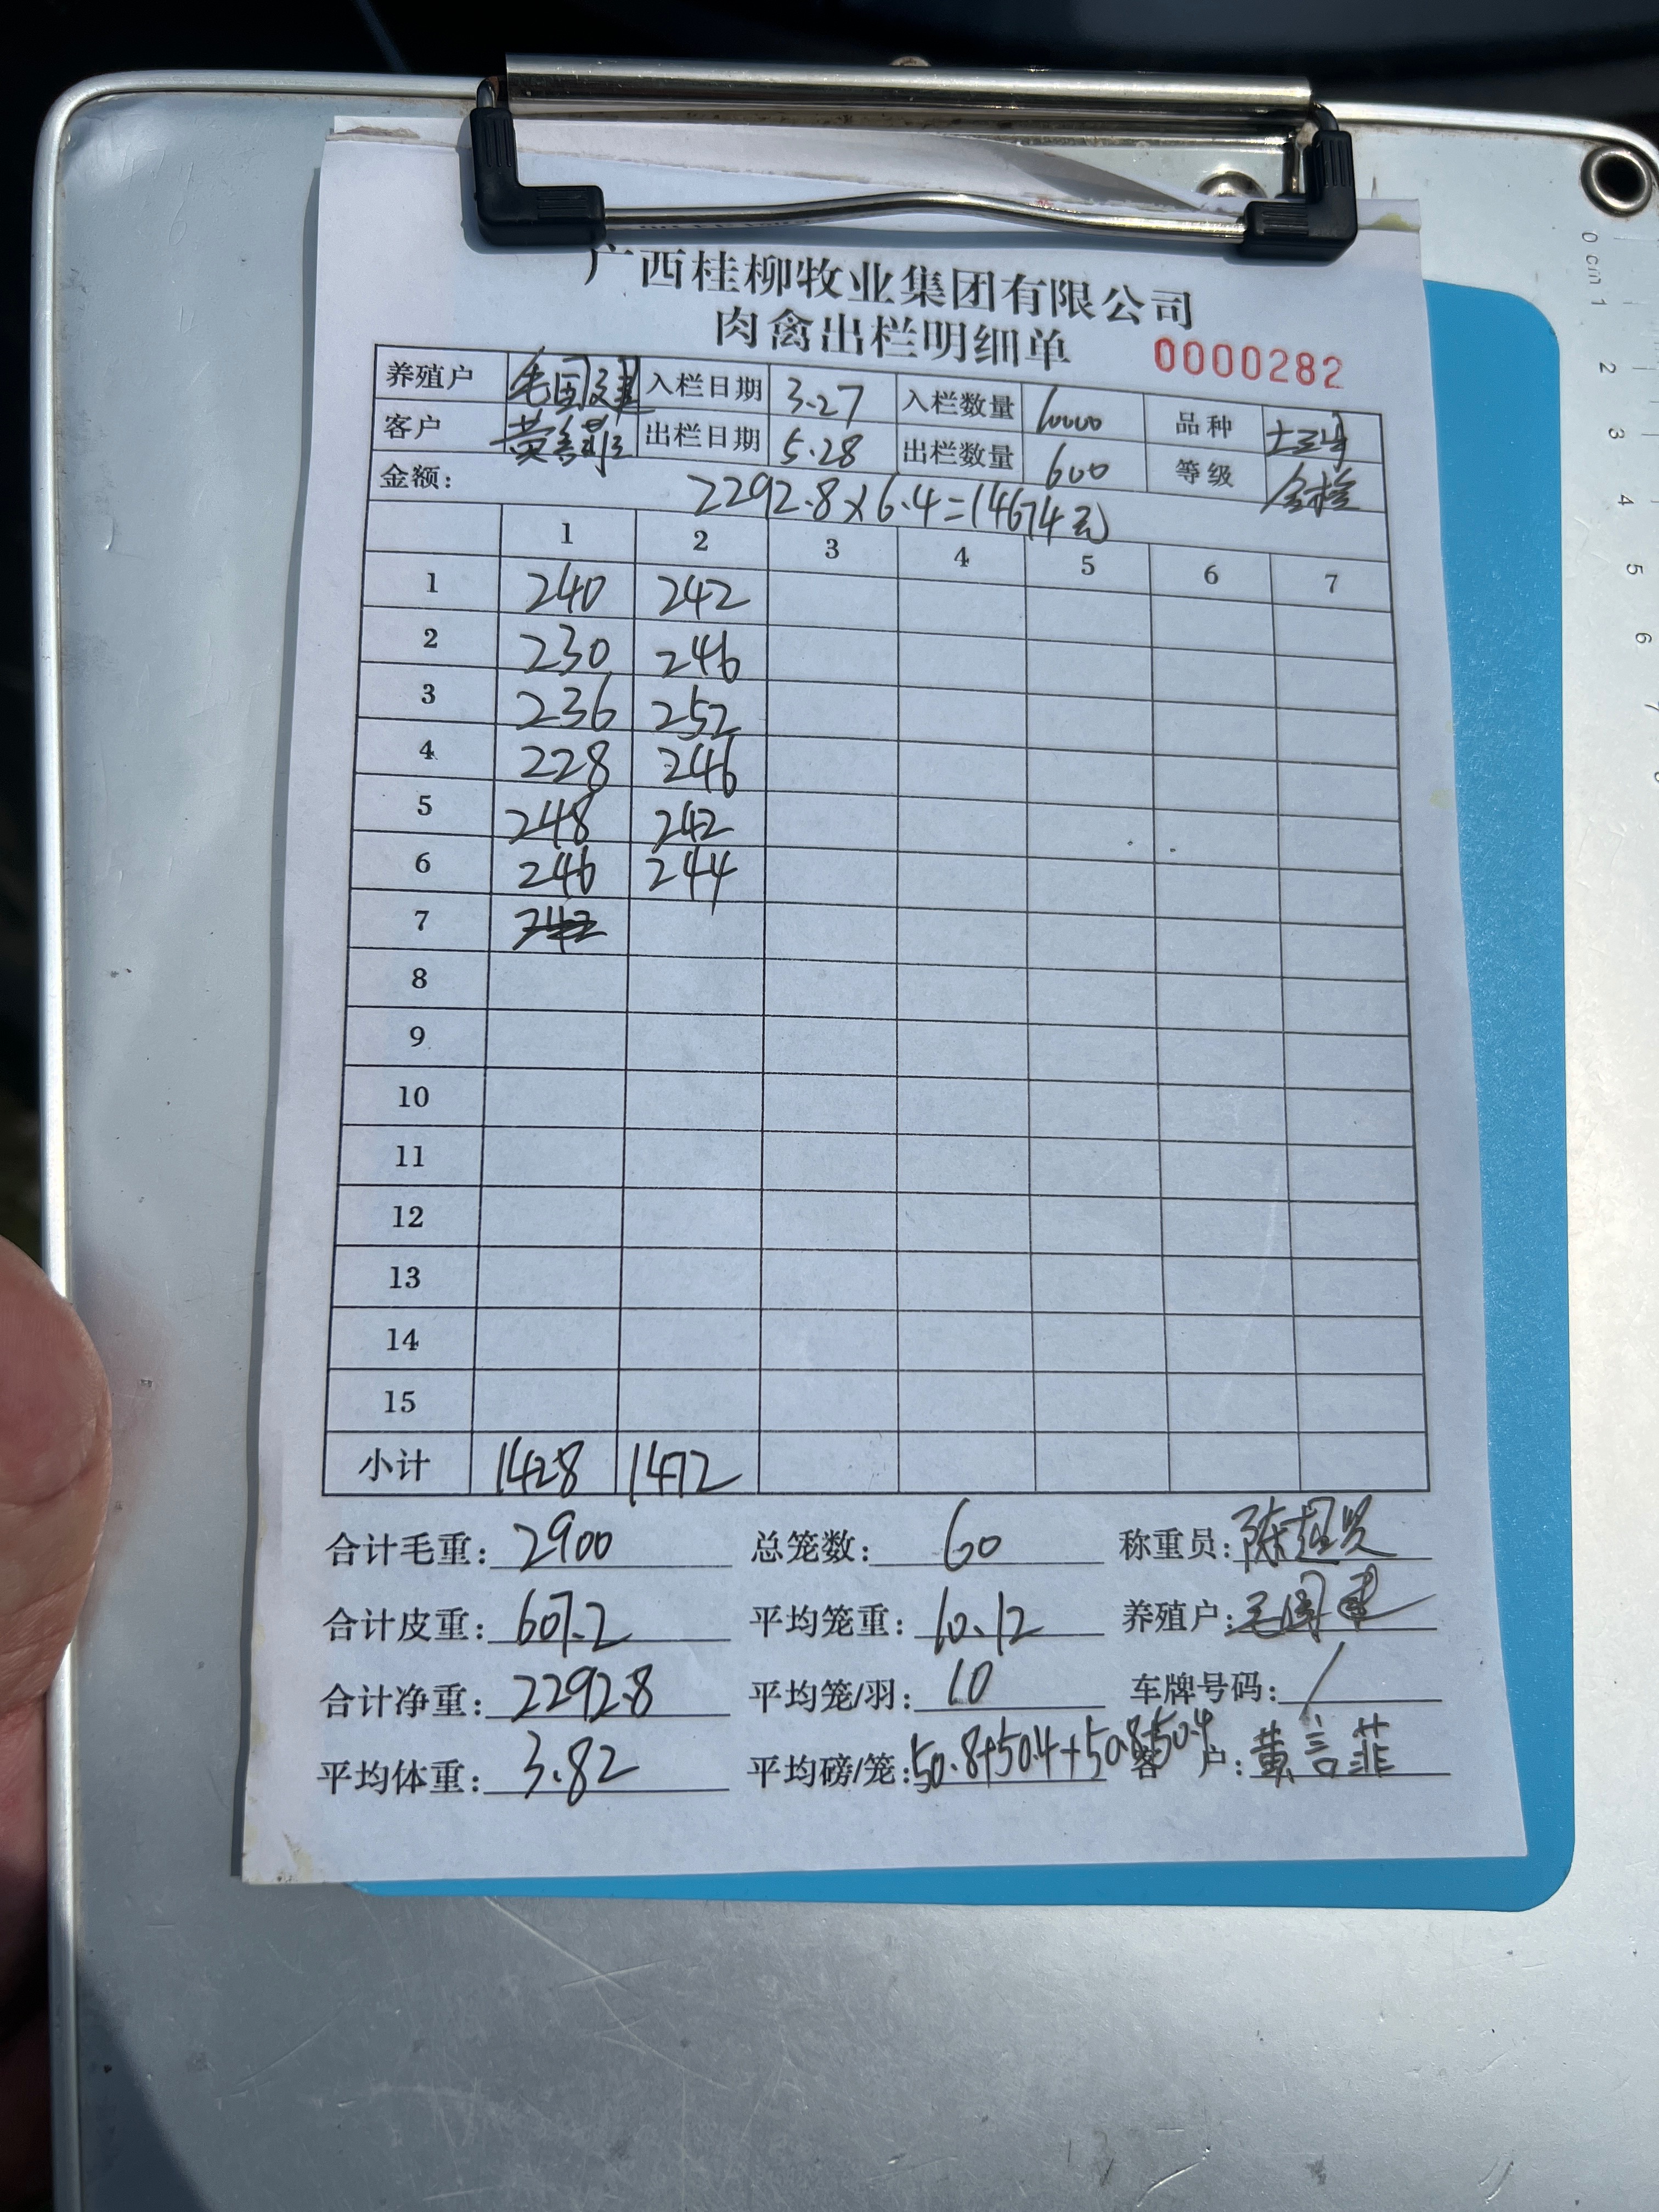 广西桂柳牧业集团有限公司
肉禽出栏明细单 0000282
养殖户 毛国建 入栏日期 3.27 入栏数量 10000 品种
客户 黄言菲 出栏日期 5.28 出栏数量 600 等级 全检
金额: 2292.8×6.4=14674元
1 2 3 4 5 6 7
1 240 242
2 230 246
3 236 252
4 228 246
5 248 242
6 246 244
7 242
8
9
10
11
12
13
14
15
小计 1428 1472
合计毛重: 2900 总笼数: 60 称重员:
合计皮重: 607.2 平均笼重: 10.12 养殖户: 毛国建
合计净重: 2292.8 平均笼/羽: 10 车牌号码: /
平均体重: 3.82 平均磅/笼: 50.8+50.4+50.8+50.4 客户: 黄言菲
0 cm 1
2
3
4
5
6
7